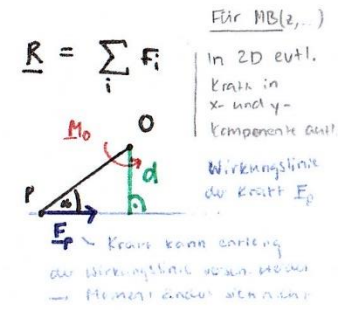 Für MB(z,...)
R = Σ Fi
i
In 2D evtl.
Kraft in
x- und y-
Komponente aufl.
M₀
O
d
P
α
Wirkungslinie
der Kraft Fp
Fp Kraft kann entlang
der Wirkungslinie werden
→ Moment ändert sich nicht